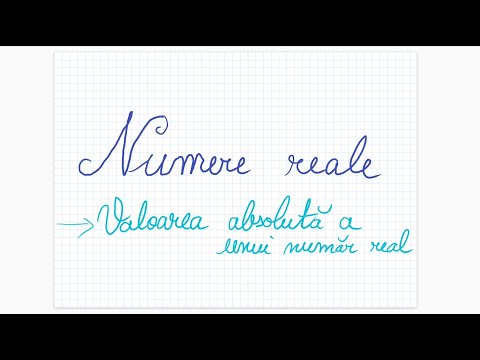 Numere reale
→ Valoarea absolută a
unui număr real